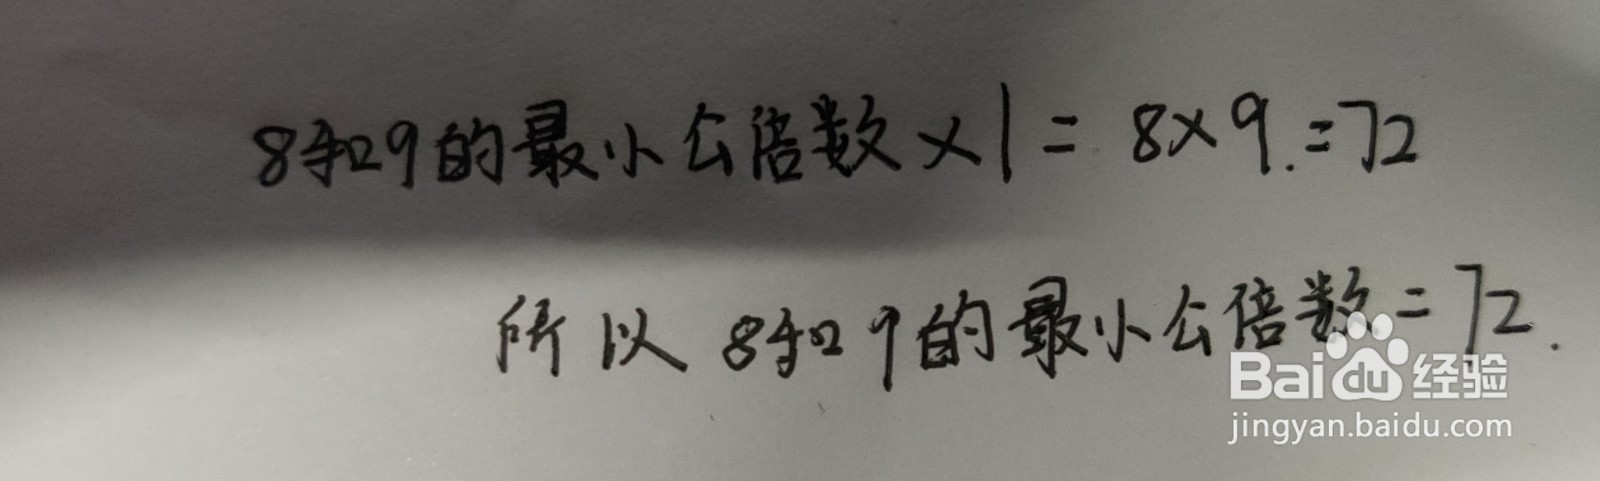 8和9的最小公倍数×1=8×9.=72
所以8和9的最小公倍数=72.
Baidu经验
jingyan.baidu.com